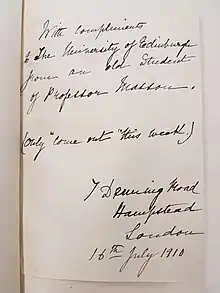 With compliments
to The University of Edinburgh
from an old Student
of Professor Masson.
(Only "come out" this week)
7 Denning Road
Hampstead
London
16th July 1910